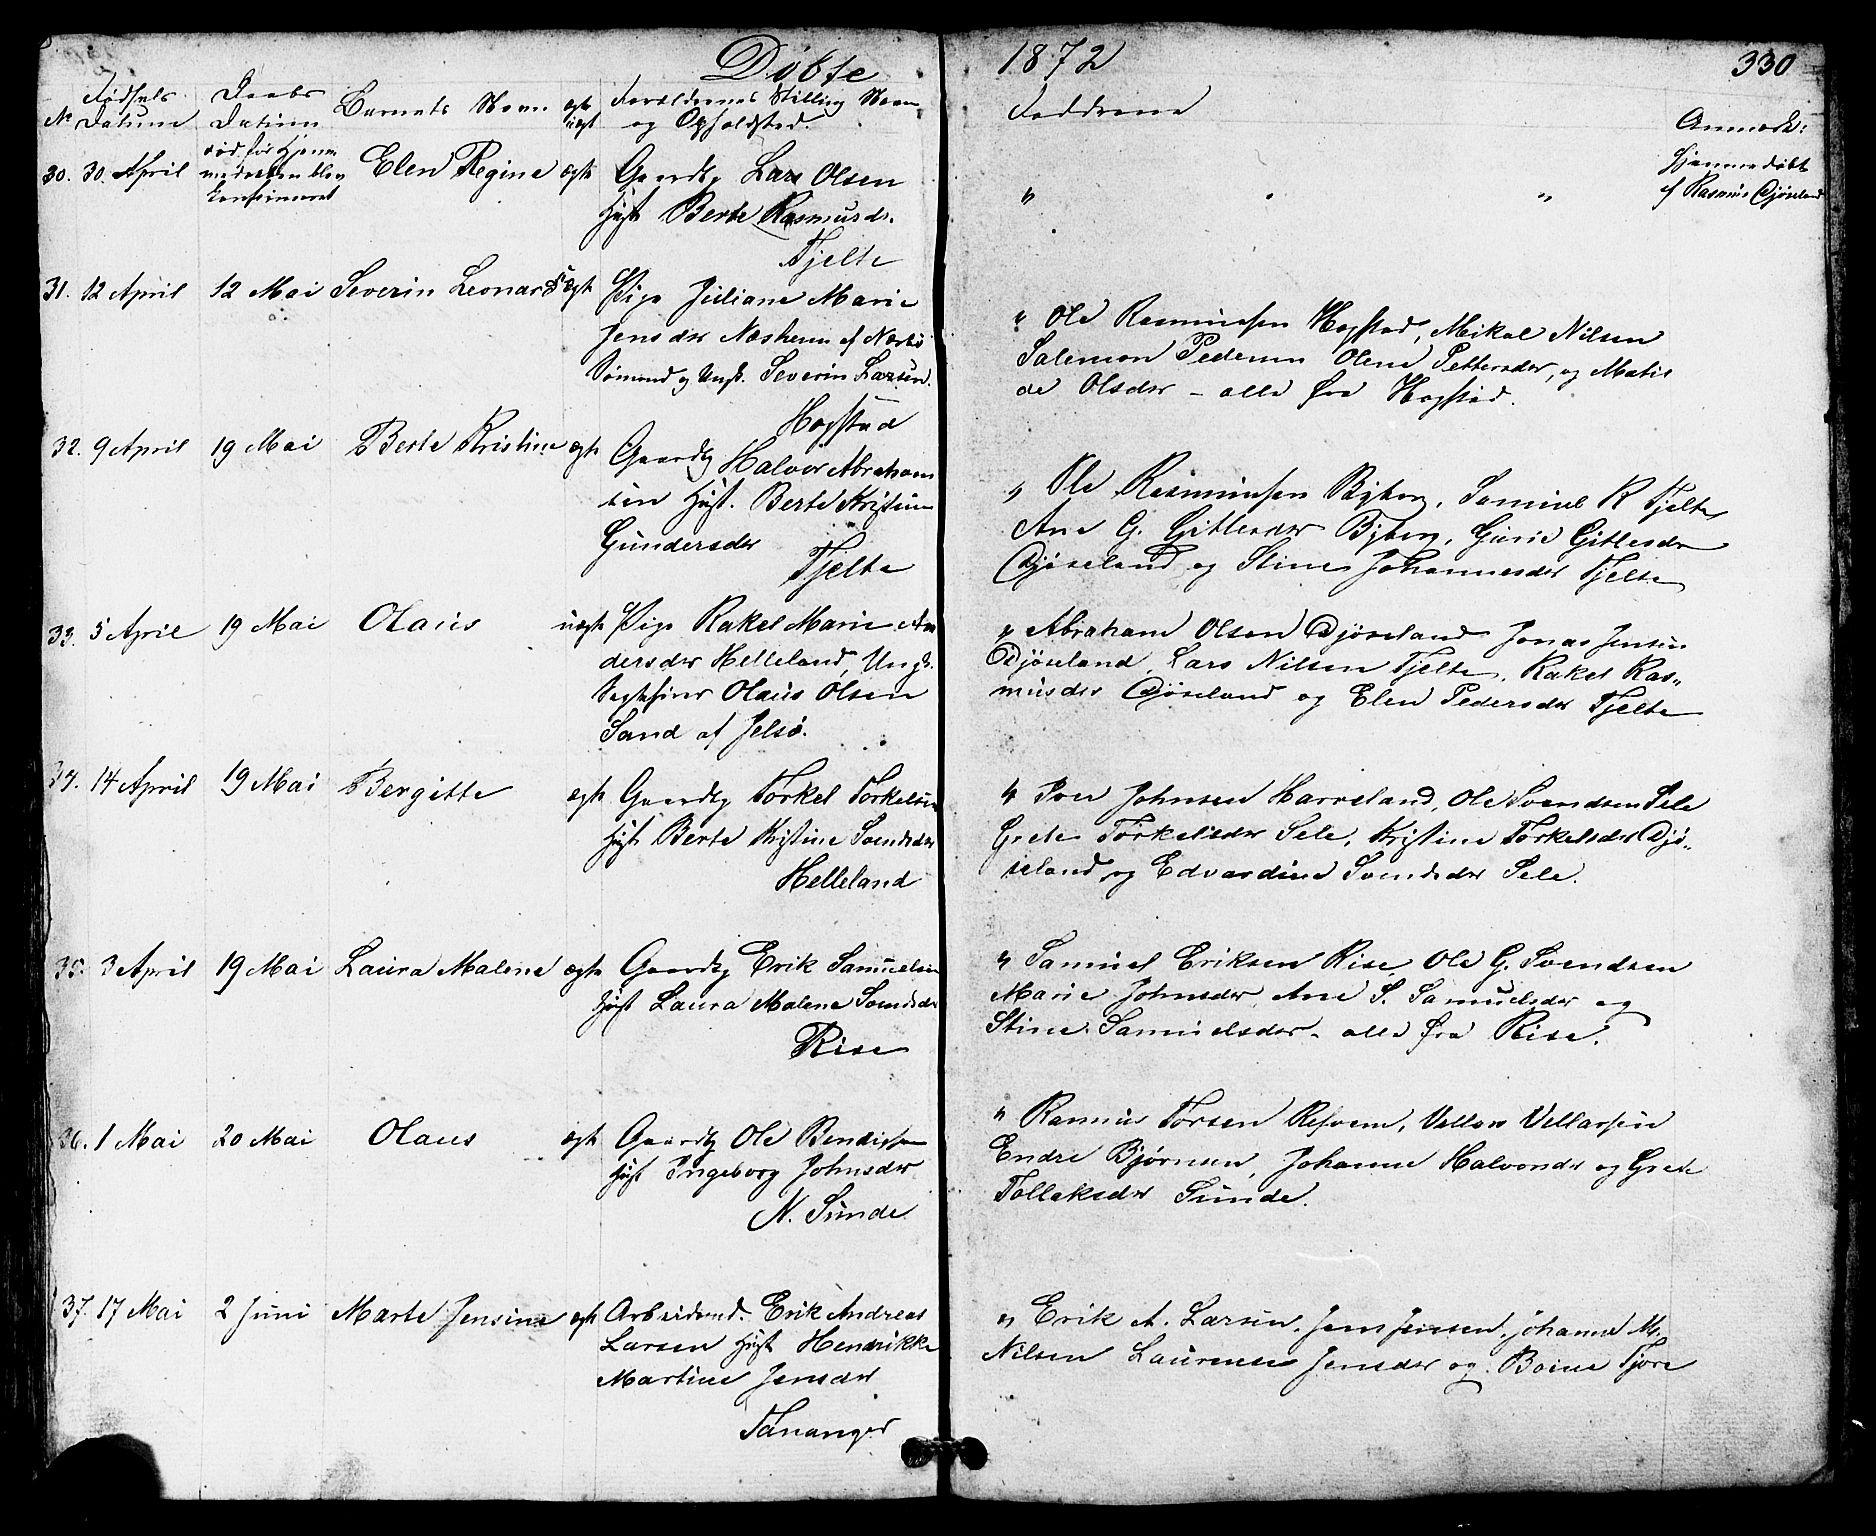 Døbte
1872
330
No Fødsels Datum
Daabs Datum
Barnets Navn
ægte uægt
Forældrenes Stilling Navn
og Opholdsted.
Faddrene
Anmærk:
30. 30. April
død før Hjemmedaaben blev konfirmeret
Elen Regine
ægte
Gaardbg Lars Olsen
Hust Berte Rasmusdr.
Tjelte
"
"
Hjemmedøbt
af Rasmus Djøseland
31. 12 April
12 Mai
Severin Leonard
uægte
Pige Juliane Marie
Jensdr Næsheim af Nærbø
Sømand og Ungk. Severin Larsen.
Hogstad
" Ole Rasmussen Hogstad, Mikal Nilsen
Salemon Pedersen Olene Pettersdr, og Matil
de Olsdr - alle fra Hogstad.
32. 9 April
19 Mai
Berte Kristine
ægte
Gaardbg Halvor Abraham
sen Hust. Berte Kristine
Gundersdr
Tjelte
" Ole Rasmussen Byberg, Samuel R Tjelte
Ane G. Gitlesdr Byberg, Gurie Gitlesdr
Djøseland og Stine Johannesdr Tjelte
33. 5 April
19 Mai
Olaus
uægte
Pige Rakel Marie An
dersdr Helleland, Ungk.
Olaus Olsen
Sand af Jelsø.
" Abraham Olsen Djøseland Jonas Jensen
Djøseland, Lars Nilsen Tjelte, Rakel Ras„
musdr Djøseland og Elen Pedersdr Tjelte
34. 14 April
19 Mai
Bergitte
ægte
Gaardbg Torkel Torkelsen
Hust Berte Kristine Svendsdr
Helleland
" Iver Johnsen Harreland, Ole Svendsen Sele
Grete Torkelsdr Sele, Kristine Torkelsdr Djø„
seland og Edvardine Svendsdr Sele.
35. 3 April
19 Mai
Laura Malene
ægte
Gaardbg Erik Samuelsen
Hust Laura Malene Svendsdr
Rise
" Samuel Eriksen Rise, Ole G. Svendsen
Marie Johnsdr, Ane S. Samuelsdr og
Stine Samuelsdr - alle fra Rise.
36. 1 Mai
20 Mai
Olaus
ægte
Gaardbg Ole Bendigsen
Hust Ingeborg Johnsdr
N. Sunde
" Rasmus Torsen Refsvem, Vellas Vellassen
Endre Bjørnsen, Johanne Halvorsdr og Grete
Tollaksdr Sunde.
37. 17 Mai
2 Juni
Marte Jensine
ægte
Arbeidsmd. Erik Andreas
Larsen Hust Hendrikke
Martine Jensdr
Tananger
" Erik A. Larsen, Jens Jensen, Johanne M.
Nilsen Laurense Jensdr og Boine Tjore